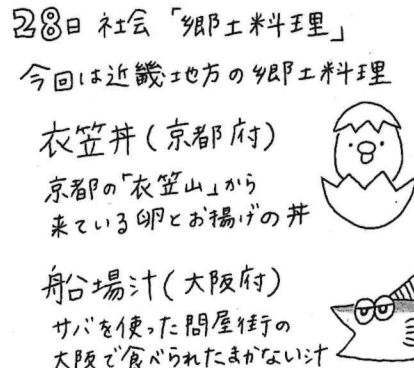 28日 社会「郷土料理」
今回は近畿地方の郷土料理
衣笠丼(京都府)
京都の「衣笠山」から
来ている卵とお揚げの丼
船場汁(大阪府)
サバを使った問屋街の
大阪で食べられたまかない汁